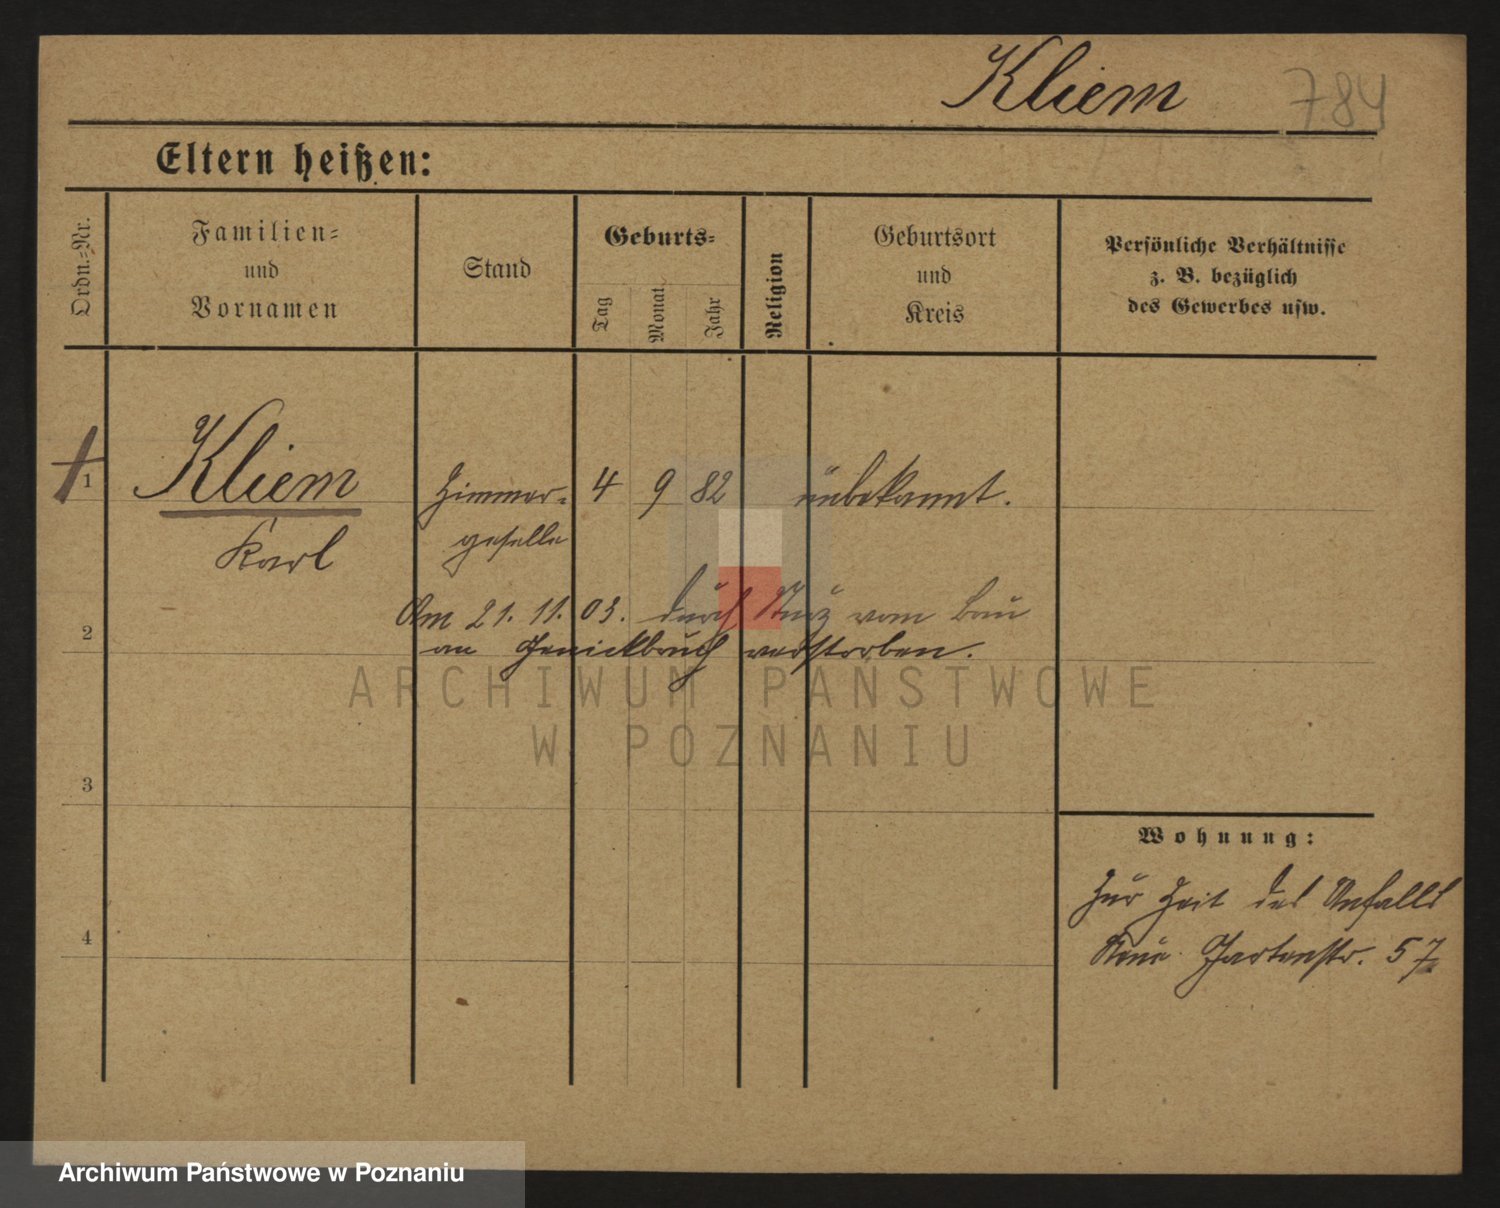 Kliem 784
Eltern heißen:
Ordn.-Nr.
Familien-
und
Vornamen
Stand
Geburts-
Tag
Monat
Jahr
Religion
Geburtsort
und
Kreis
Persönliche Verhältnisse
z. B. bezüglich
des Gewerbes usw.
1 Kliem Zimmer- 4 9 82 unbekannt.
Karl geselle
Am 21. 11. 03. durch Sturz vom Bau
2
an Genickbruch verstorben.
ARCHIWUM PAŃSTWOWE
W POZNANIU
3
Wohnung:
Zur Zeit des Unfalls
4
Neue Gartenstr. 57
Archiwum Państwowe w Poznaniu